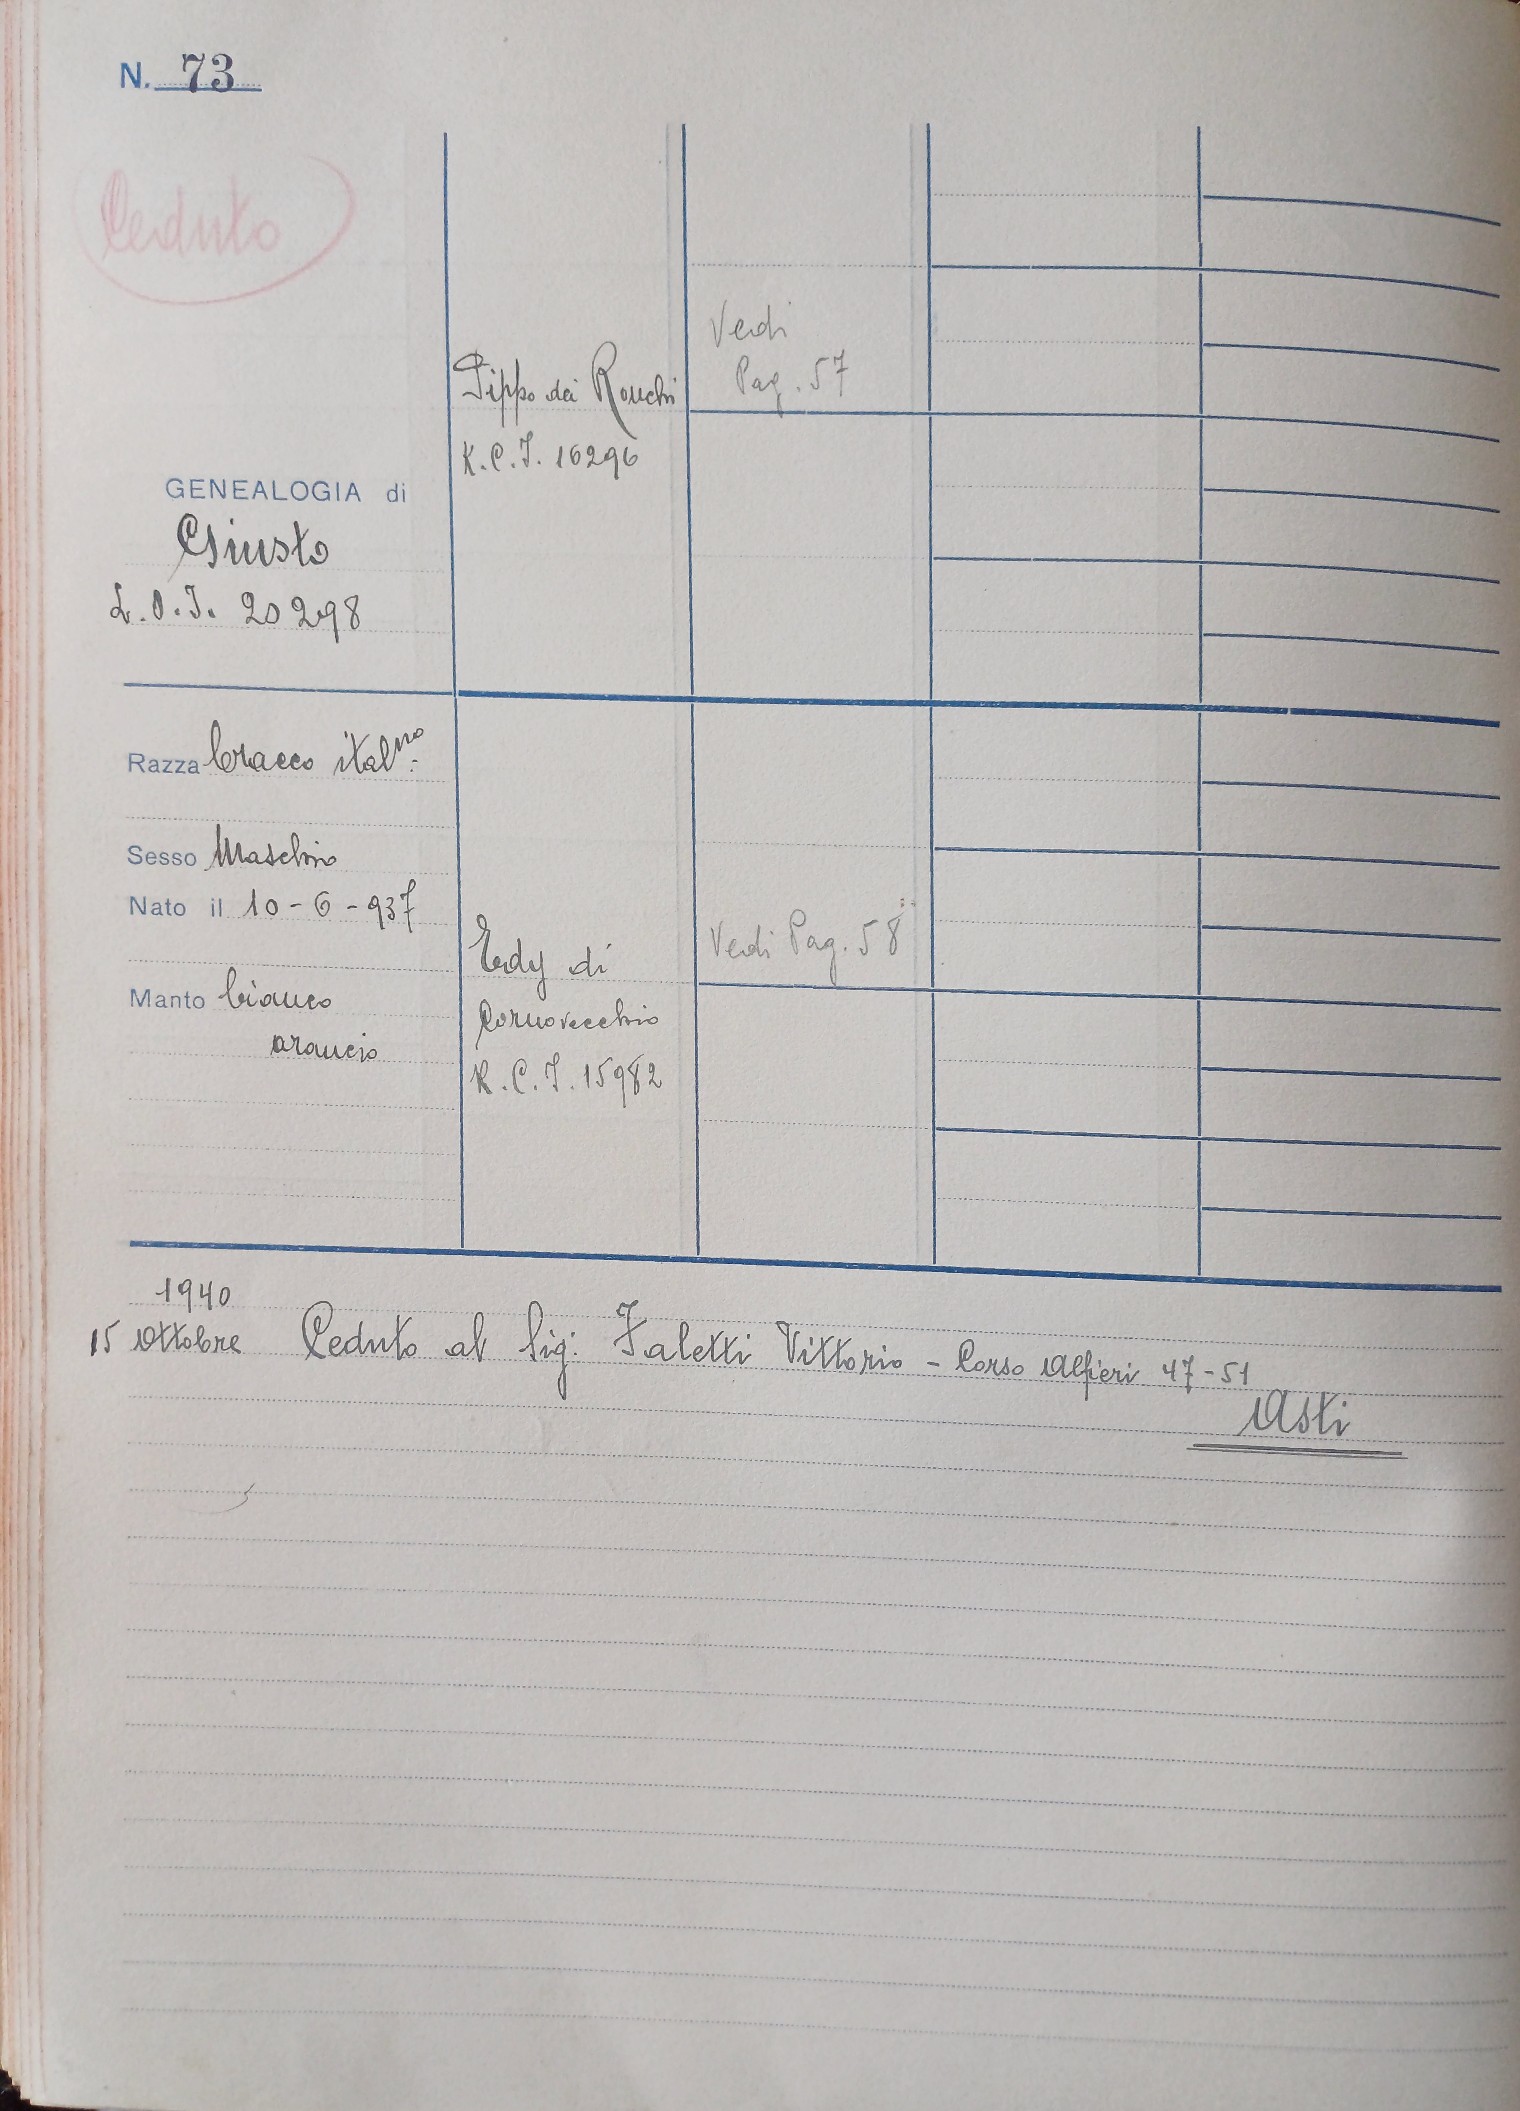 N. 73
Ceduto
GENEALOGIA di
Giusto
L.O.I. 20298
Razza bracco ital.no
Sesso Maschio
Nato il 10-6-937
Manto bianco
arancio
Pippo dei Ronchi
K.C.I. 16296
Verdi
Pag. 57
Erdy di
Cornovecchio
K.C.I. 15982
Verdi Pag. 58
1940
15 Ottobre Ceduto al Sig: Faletti Vittorio - Corso Alfieri 47-51
Asti